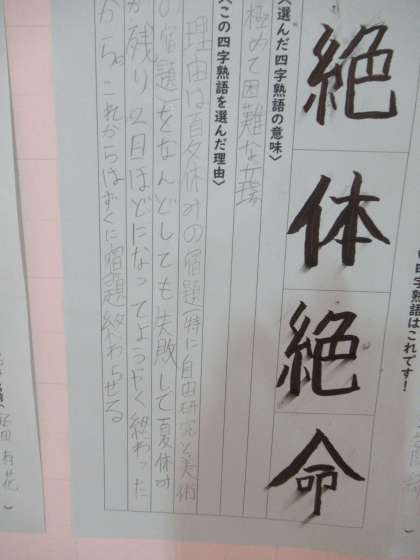 四字熟語はこれです!
絶体絶命
〈選んだ四字熟語の意味〉
極めて困難な立場
〈この四字熟語を選んだ理由〉
理由は夏休みの宿題(特に自由研究と美術
の宿題)をなんどしても失敗して夏休み
が残り2日ほどになってようやく終わった
から。これからはすぐに宿題終わらせる